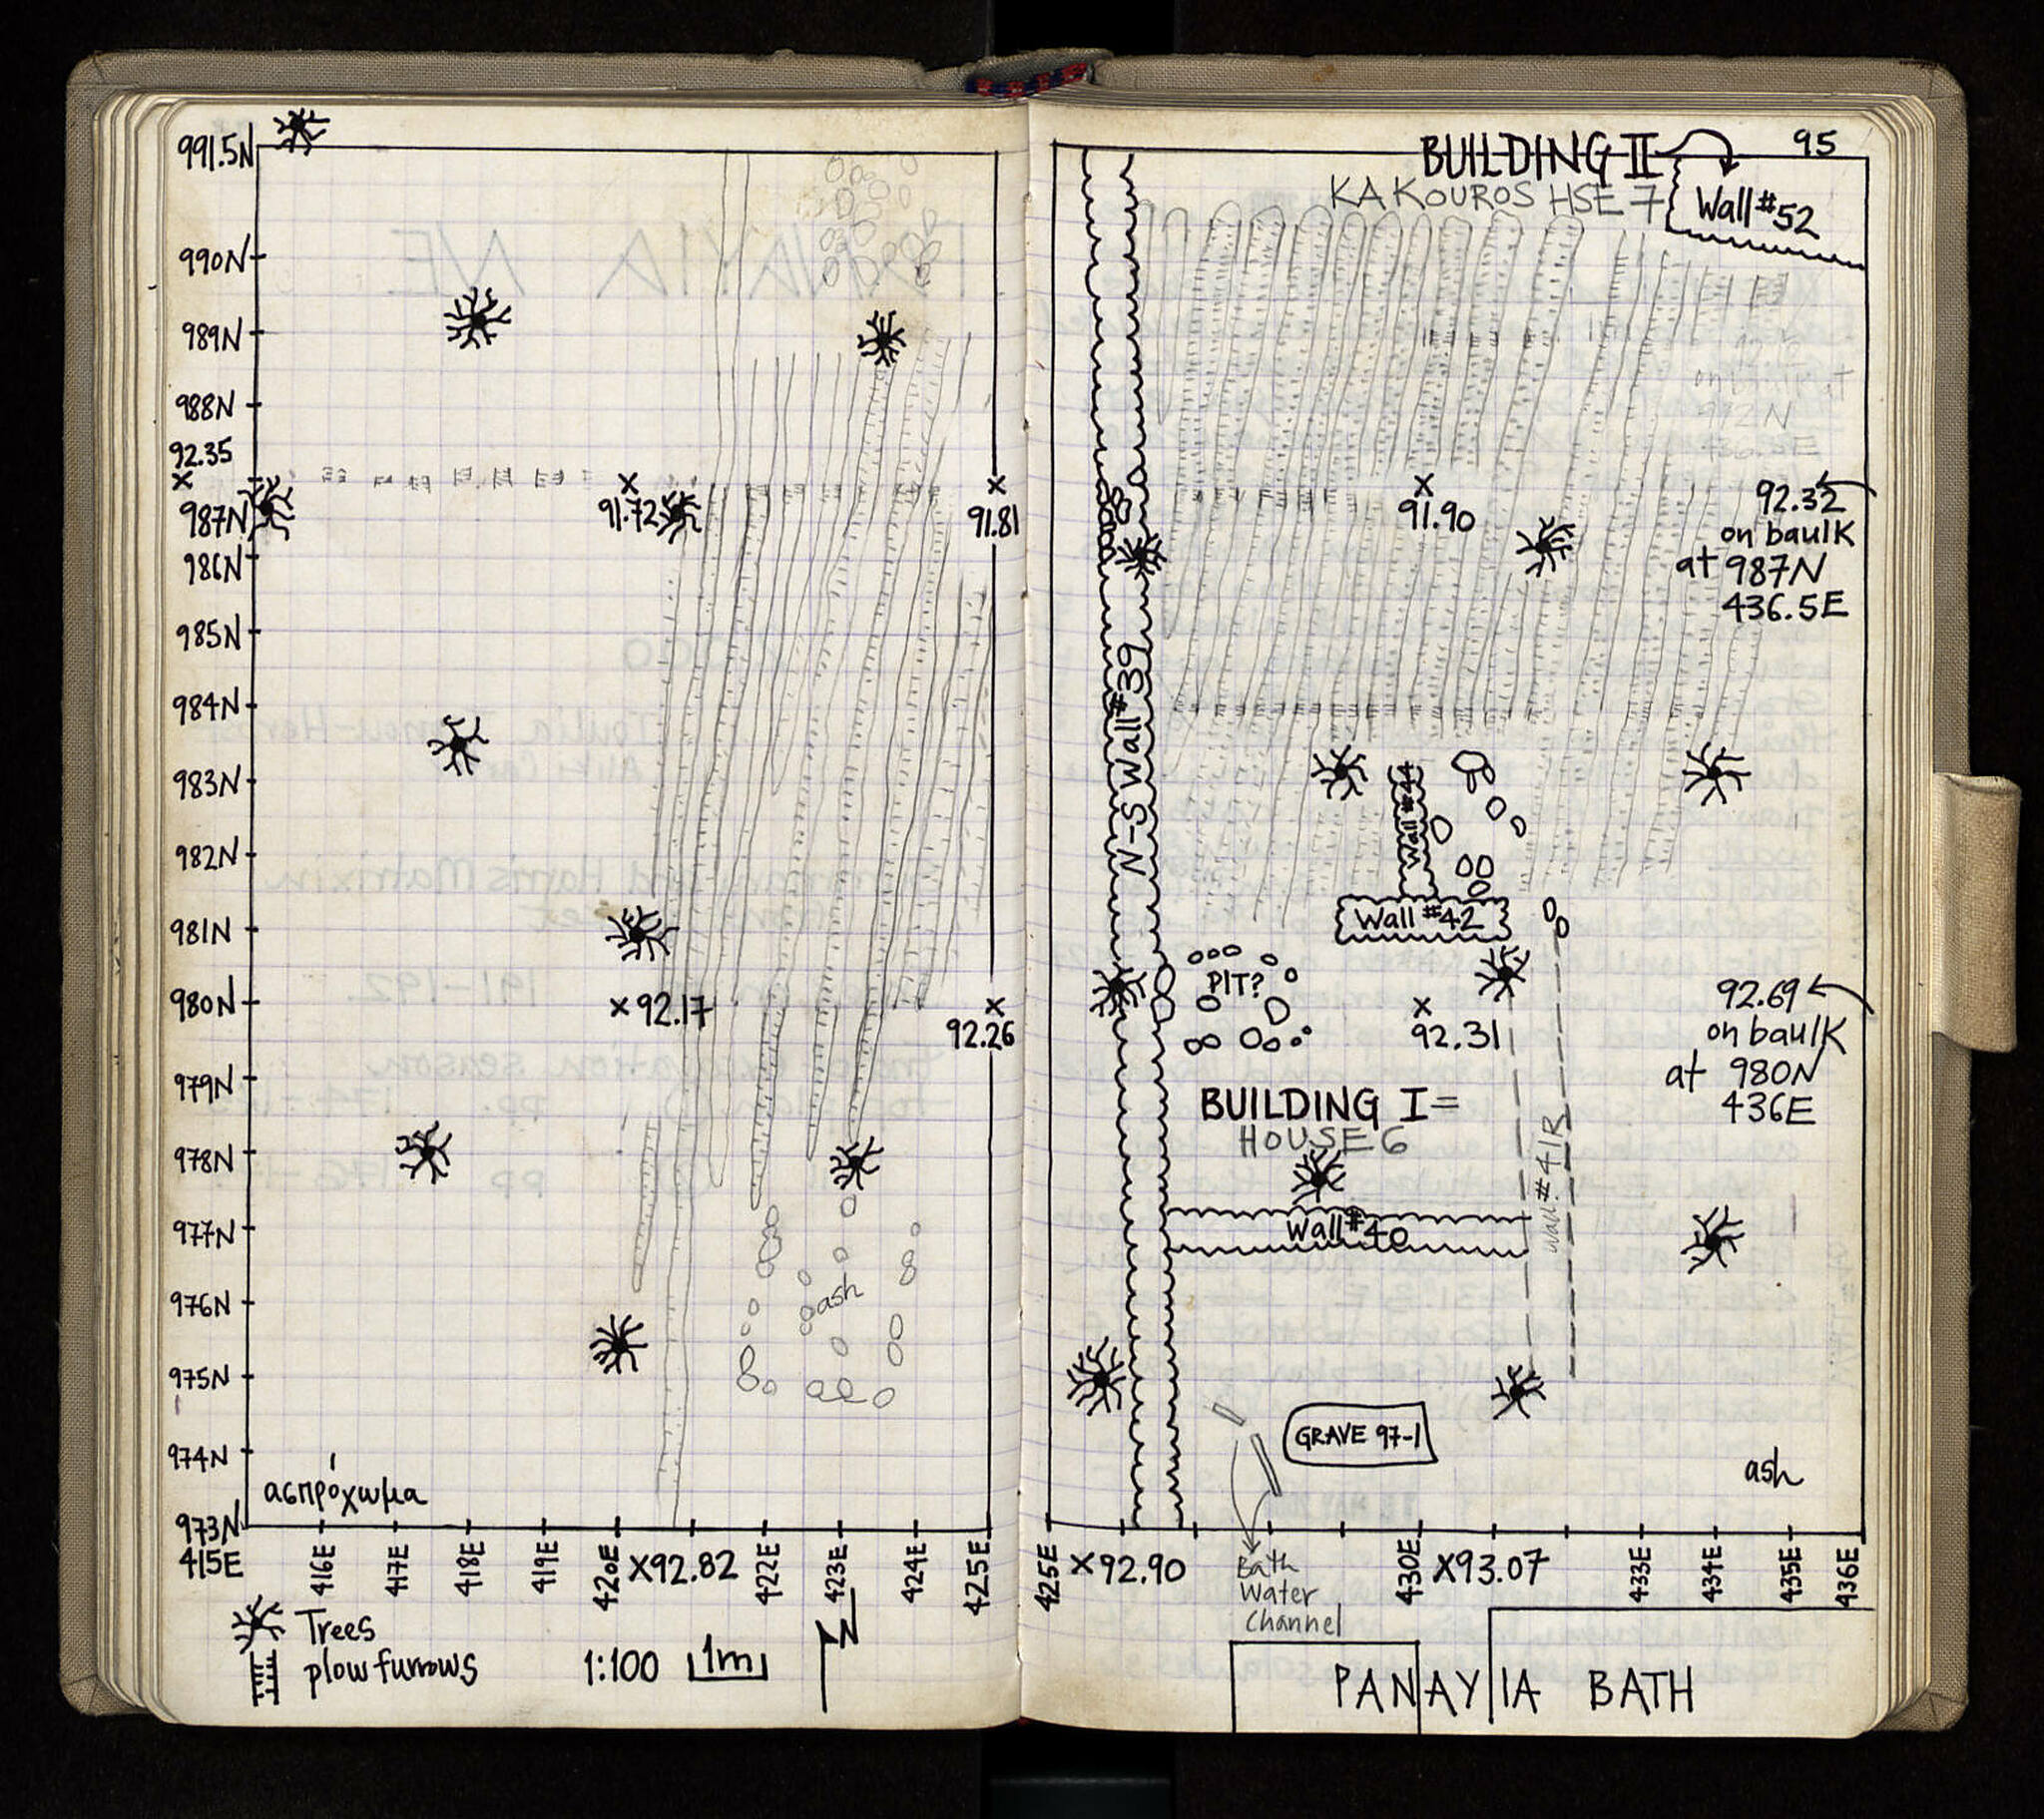 991.5N
990N
989N
988N
92.35
x
987N
986N
985N
984N
983N
982N
981N
980N
979N
978N
977N
976N
975N
974N
973N
415E
x
91.72
x
91.81
x 92.17
x
92.26
ash
ασπρόχωμα
416E
417E
418E
419E
420E
X92.82
422E
423E
424E
425E
Trees
plow furrows
1:100
1m
N
95
BUILDING II
KAKOUROS HSE 7
Wall #52
x
91.90
92.32
on baulk
at 987N
436.5E
N-S Wall #39
Wall #44
Wall #42
PIT?
x
92.31
92.69
on baulk
at 980N
436E
BUILDING I =
HOUSE 6
Wall #41R
Wall #40
GRAVE 97-1
ash
425E
X92.90
430E
X93.07
433E
434E
435E
436E
Bath
Water
Channel
PANAYIA BATH